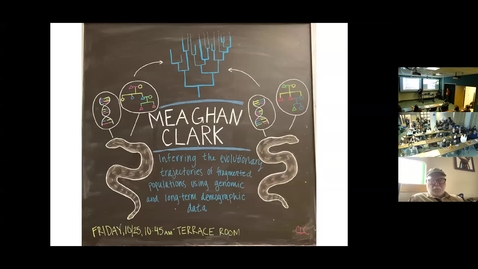 MEAGHAN
CLARK
Inferring the evolutionary
trajectories of fragmented
populations using genomic
and long-term demographic
data
FRIDAY, 10/25, 10:45am· TERRACE ROOM